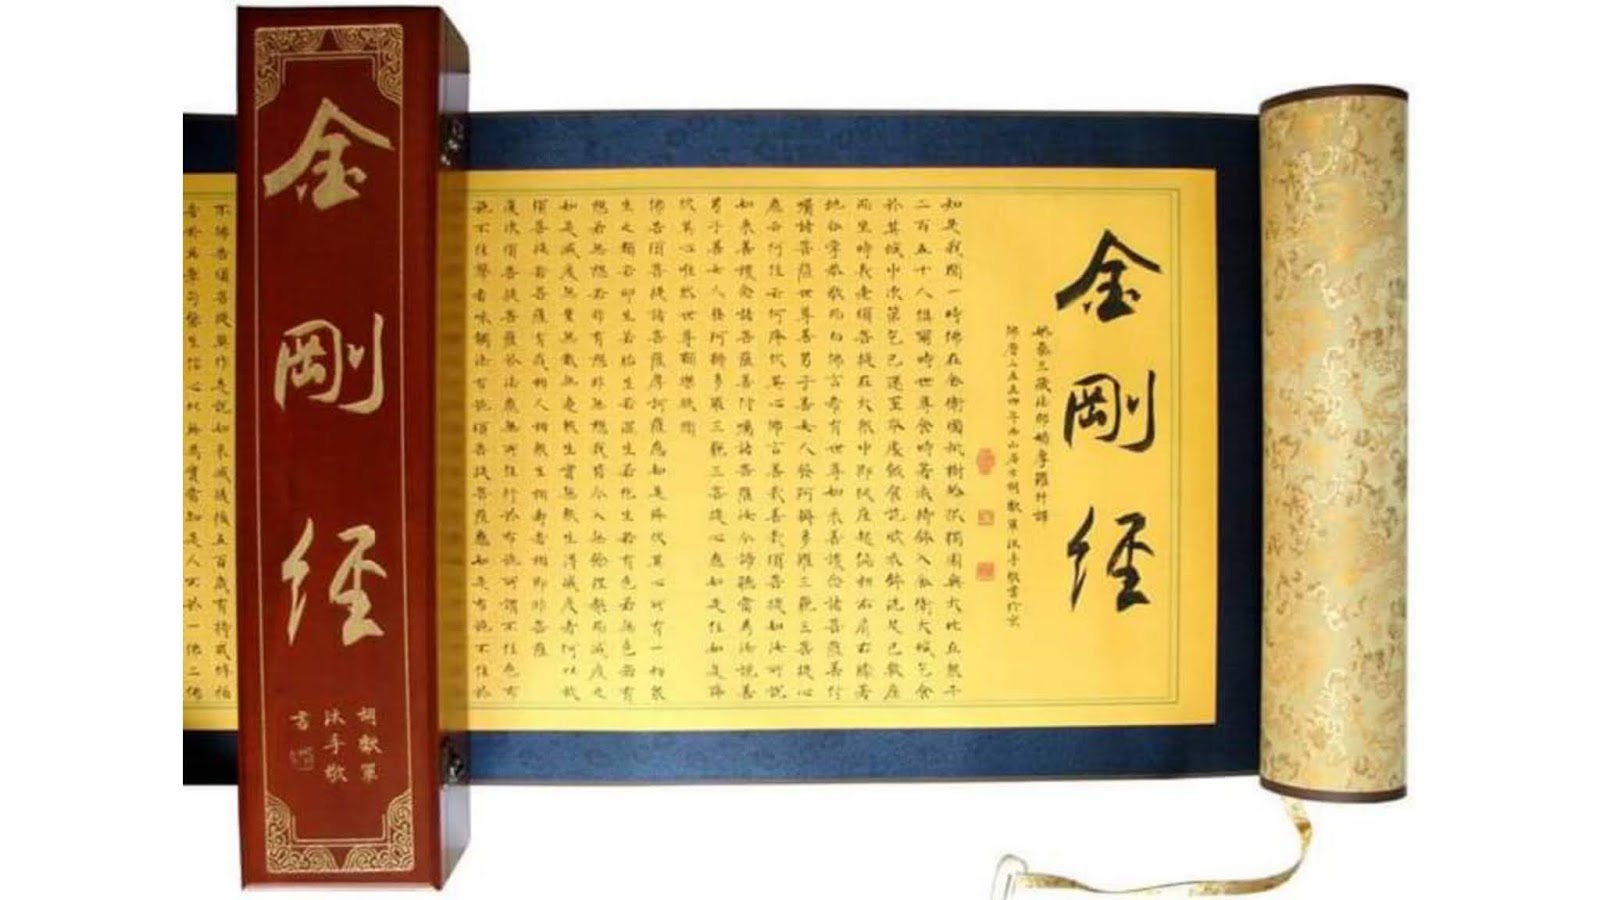 金剛經
胡獻軍
沐手敬
書
金剛經
姚秦三藏法師鳩摩羅什譯
佛曆二五五四年西山居士胡獻軍沐手敬書於京
如是我聞一時佛在舍衛國祇樹給孤獨園與大比丘眾千
二百五十人俱爾時世尊食時著衣持鉢入舍衛大城乞食
於其城中次第乞已還至本處飯食訖收衣鉢洗足已敷座
而坐時長老須菩提在大眾中即從座起偏袒右肩右膝著
地合掌恭敬而白佛言希有世尊如來善護念諸菩薩善付
囑諸菩薩世尊善男子善女人發阿耨多羅三藐三菩提心
應云何住云何降伏其心佛言善哉善哉須菩提如汝所說
如來善護念諸菩薩善付囑諸菩薩汝今諦聽當為汝說善
男子善女人發阿耨多羅三藐三菩提心應如是住如是降
伏其心唯然世尊願樂欲聞
佛告須菩提諸菩薩摩訶薩應如是降伏其心所有一切眾
生之類若卵生若胎生若濕生若化生若有色若無色若有
想若無想若非有想非無想我皆令入無餘涅槃而滅度之
如是滅度無量無數無邊眾生實無眾生得滅度者何以故
須菩提若菩薩有我相人相眾生相壽者相即非菩薩
復次須菩提菩薩於法應無所住行於布施所謂不住色布
施不住聲香味觸法布施須菩提菩薩應如是布施不住於
不佛告須菩提莫作是說如來滅後後五百歲有持戒修福
者於此章句能生信心以此為實當知是人不於一佛二佛